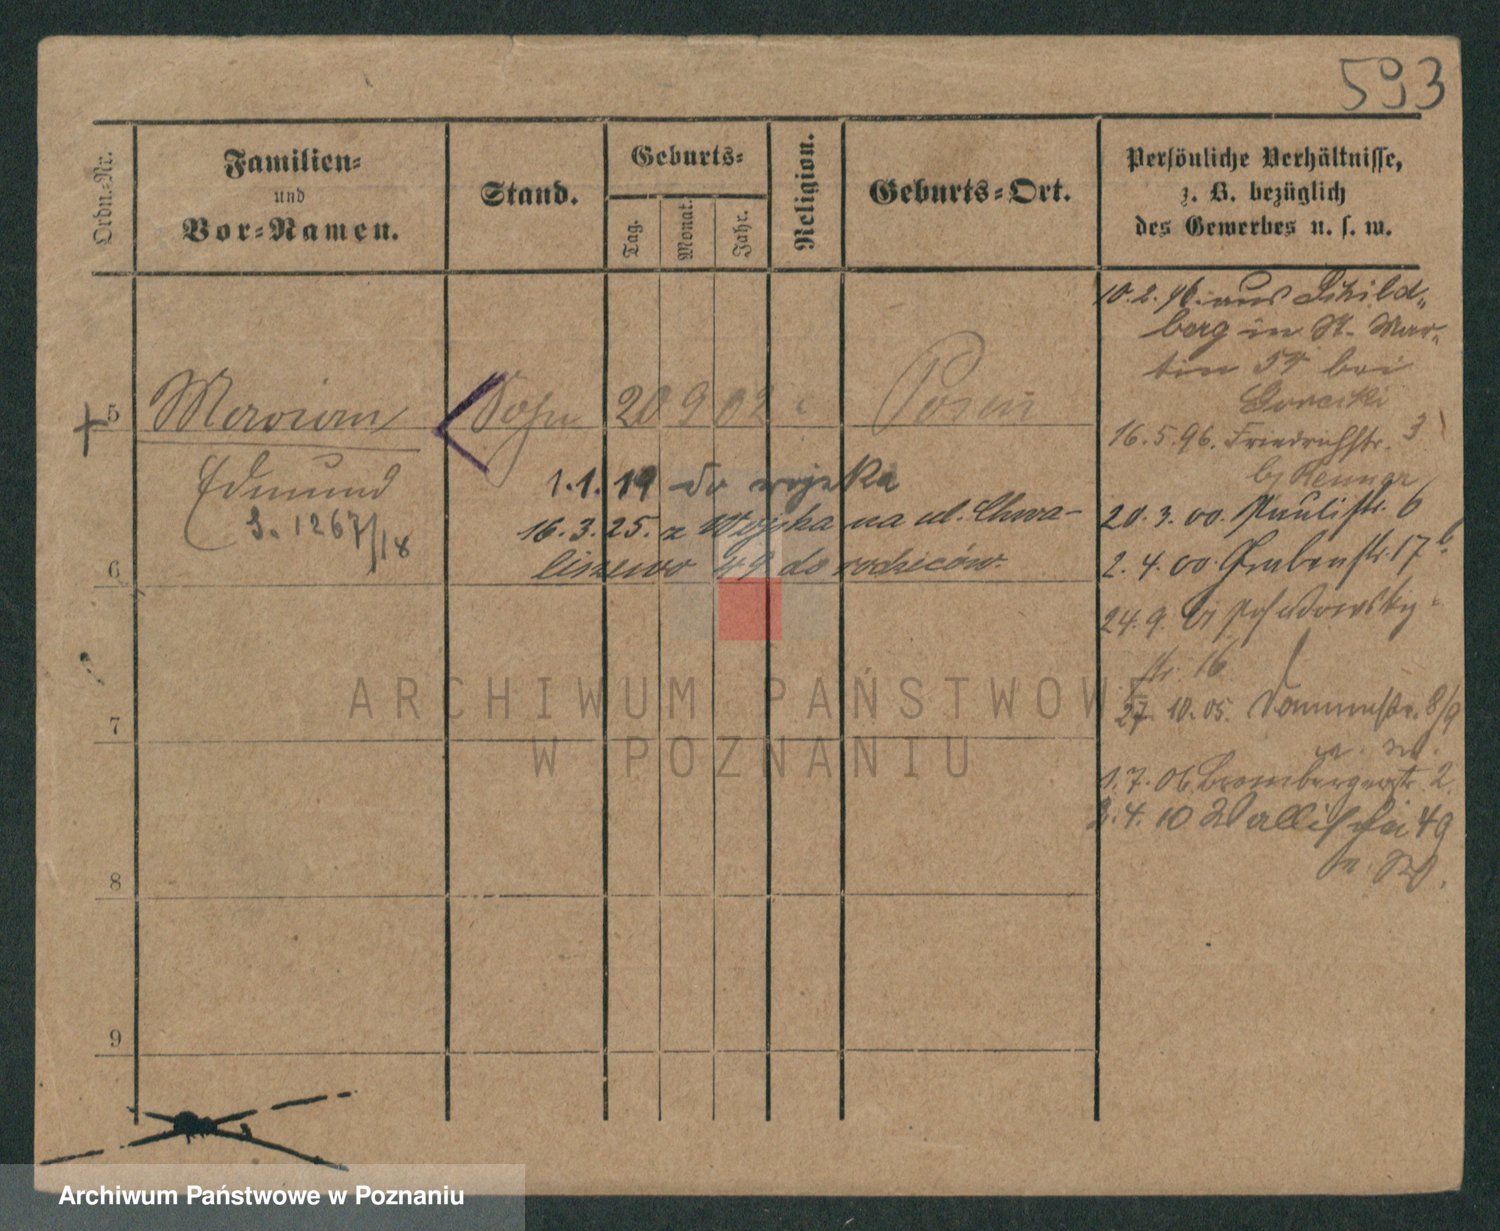 593
Ordn.-Nr.
Familien-
und
Vor-Namen.
Stand.
Geburts-
Tag.
Monat.
Jahr.
Religion.
Geburts-Ort.
Persönliche Verhältnisse,
z. B. bezüglich
des Gewerbes u. s. w.
10.2.96. aus Schild-
berg in St. Mar-
tin 54 bei
Gorecki
16.5.96. Friedrichstr. 3
b/ Renner
20.3.00. Paulistr. 6
2.4.00. Grabenstr. 17
24.9. Posadowsky-
str. 16
27.10.05. Dominstr. 8/9
1.7.06. Brombergerstr. 2.
2.4.10 Wallischei 49
5 Marian Sohn 20 9 02 Posen
Edmund
1.1.19 do wojska
1267/18
16.3.25. z Wojska na ul. Chwa-
liszewo 49 do rodziców.
6
7
8
9
ARCHIWUM PAŃSTWOWE
W POZNANIU
Archiwum Państwowe w Poznaniu